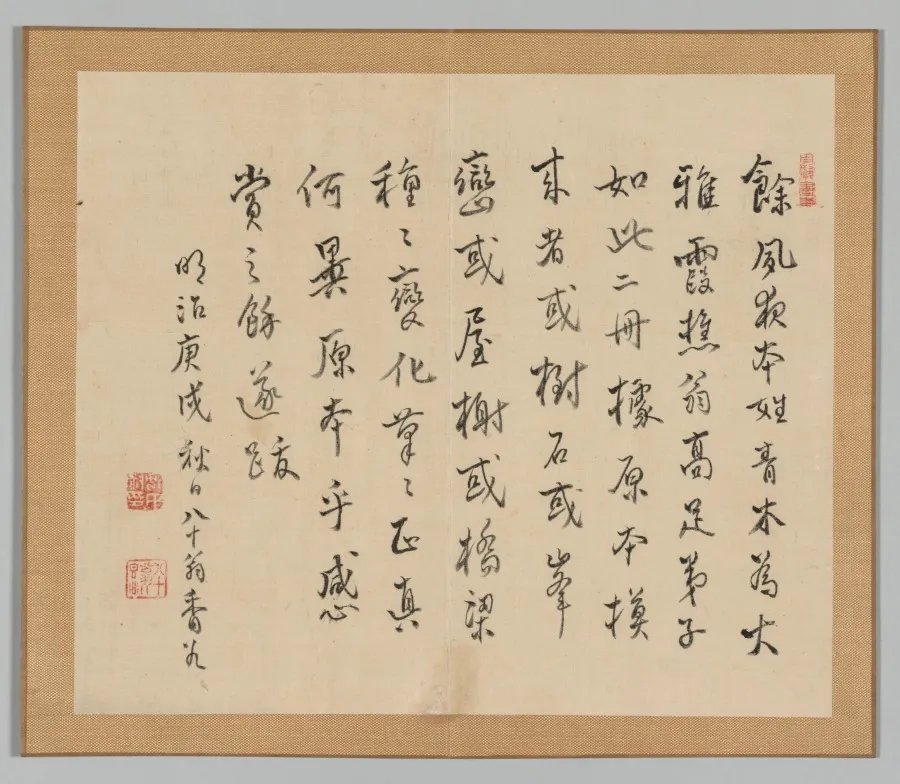 餘夙夜本姓青木為大
雅霞樵翁高足弟子
如此二冊據原本模
來者或樹石或峯
巒或屋榭或橋梁
種〻變化筆〻正真
何異原本乎感
賞之餘遂跋
明治庚戌秋日八十翁香谷